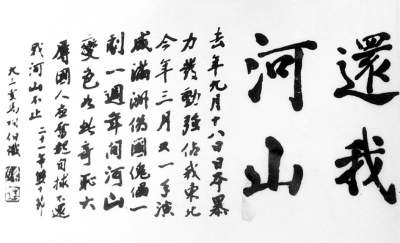 還我
河山
去年九月十八日日本暴
力發動強佔我東北
今年三月又一手演
成滿洲偽國傀儡
劇一週年間河山
變色如此奇恥大
辱國人應奮起自救不還
我河山不止 二十一年雙十節
九三叟馬相伯識